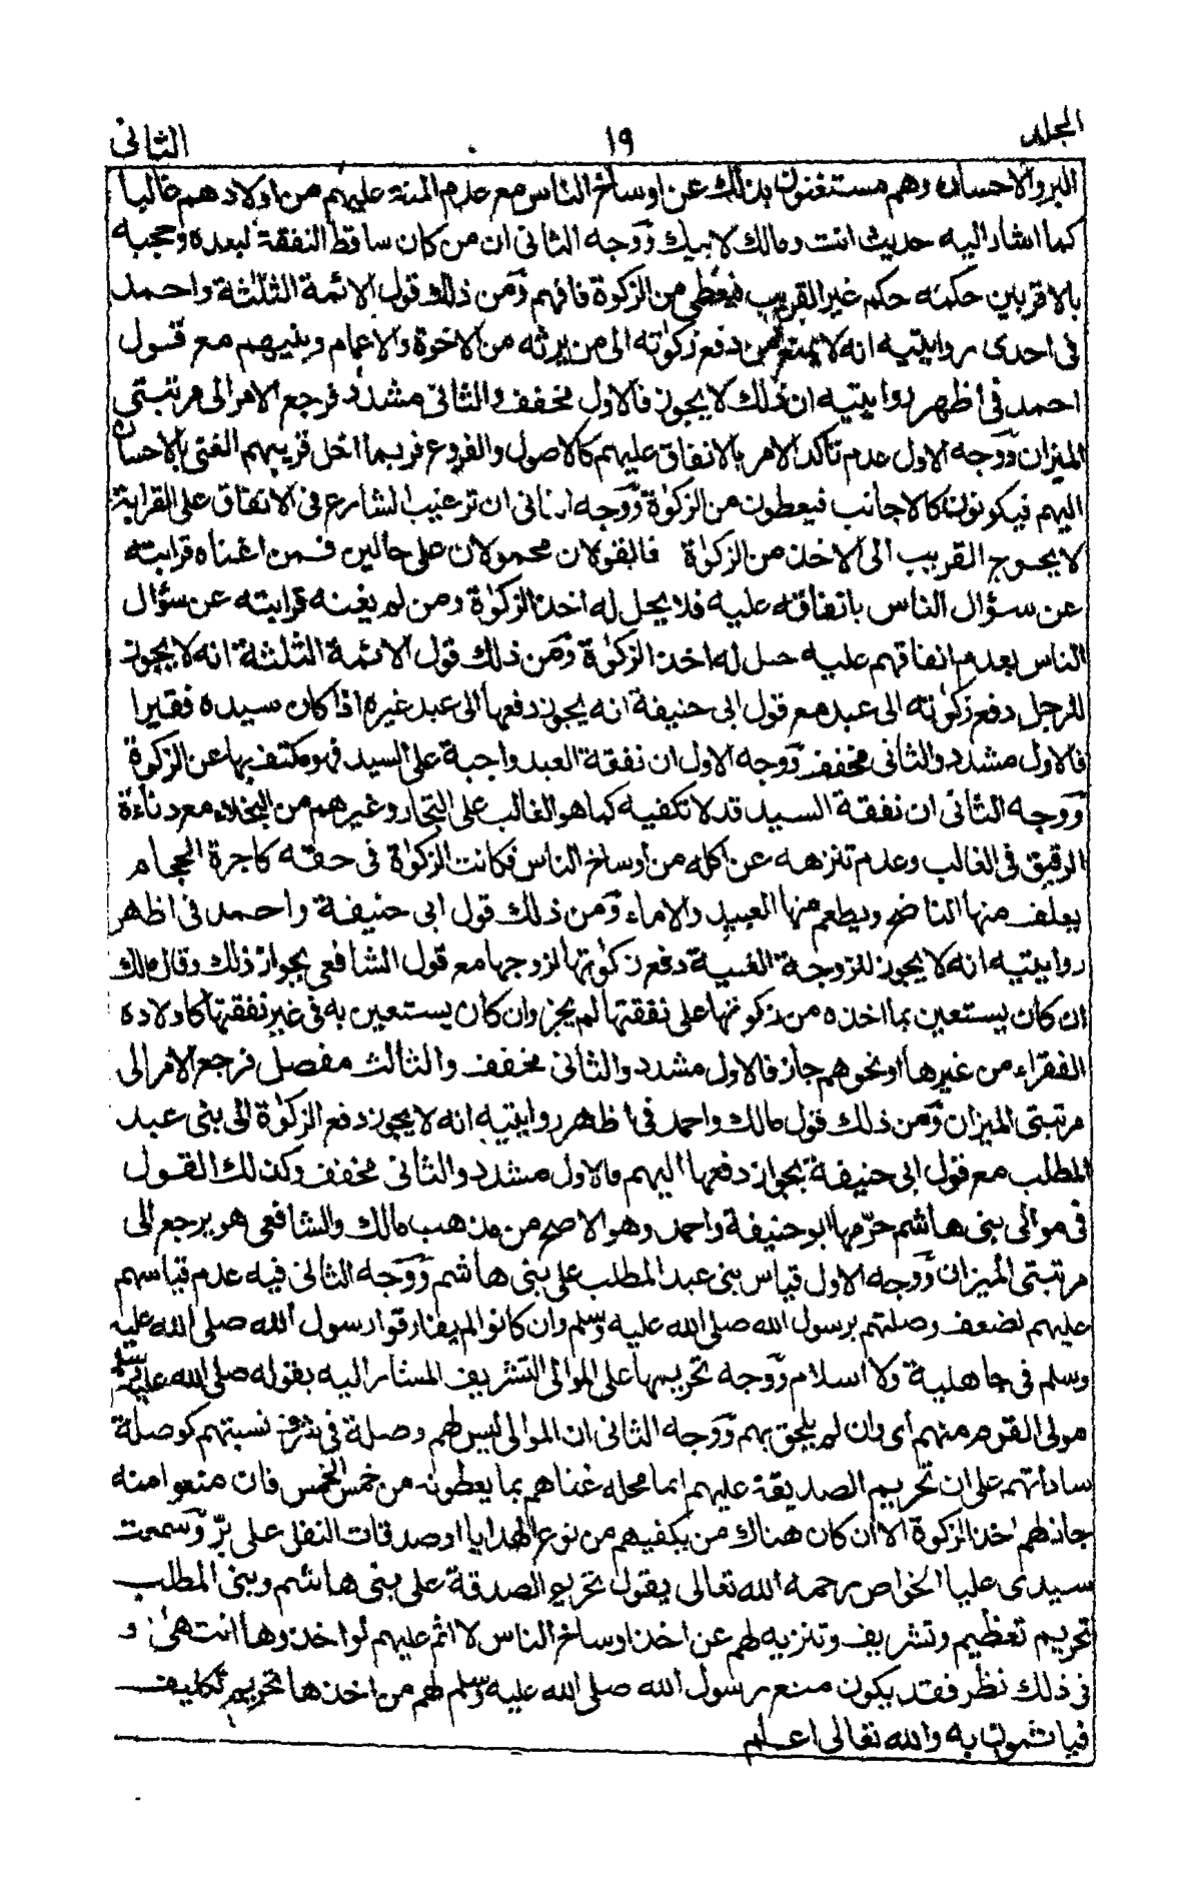 المجلد ١٩ الثانى
البر والاحسان وهم مستغنون بذلك عن اوساخ الناس مع عدم المنة عليهم من اولادهم غالبا
كما اشار اليه حديث انت ومالك لابيك ووجه الثانى ان من كان ساقط النفقة لبعده وحجبه
بالاقربين حكمه حكم غير القريب فيعطى من الزكوة فافهم ومن ذلك قول الائمة الثلثة واحمد
فى احدى روايتيه انه لا يمتنع من دفع زكوٰته الى من يرثه من الاخوة والاعمام وبنيهم مع قول
احمد فى اظهر روايتيه ان ذلك لا يجوز فالاول مخفف والثانى مشدد فرجع الامر الى مرتبتى
الميزان ووجه الاول عدم تأكد الامر بالانفاق عليهم كالاصول والفروع فربما اخل قريبهم الغنى بالاحسان
اليهم فيكونون كالاجانب فيعطون من الزكوٰة ووجه الثانى ان ترغيب الشارع فى الانفاق على القرابة
لا يحوج القريب الى الاخذ من الزكوٰة فالقولان محمولان على حالين فمن اغناه قرابته
عن سؤال الناس بانفاقه عليه فلا يحل له اخذ الزكوٰة ومن لم يغنه قرابته عن سؤال
الناس بعدم انفاقهم عليه حل له اخذ الزكوٰة ومن ذلك قول الائمة الثلثة انه لا يجوز
للرجل دفع زكوٰته الى عبد مع قول ابى حنيفة انه يجوز دفعها الى عبد غيره اذا كان سيده فقيرا
فالاول مشدد والثانى مخفف ووجه الاول ان نفقة العبد واجبة على السيد فهو مكتف بها عن الزكوة
ووجه الثانى ان نفقة السيد قد لا تكفيه كما هو الغالب على التجار وغيرهم من البخلاء مع دناءة
الرقيق فى الغالب وعدم تنزهه عن اكله من اوساخ الناس فكانت الزكوٰة فى حقه كاجرة الحجام
يعلف منها الناضح ويطعم منها العبيد والاماء ومن ذلك قول ابى حنيفة واحمد فى اظهر
روايتيه انه لا يجوز للزوجة الغنية دفع زكوٰتها لزوجها مع قول الشافعى بجواز ذلك وقال مالك
ان كان يستعين بما اخذه من زكوتها على نفقتها لم يجز وان كان يستعين به فى غير نفقتها كاولاده
الفقراء من غيرها او نحوهم جاز فالاول مشدد والثانى مخفف والثالث مفصل فرجع الامر الى
مرتبتى الميزان ومن ذلك قول مالك واحمد فى اظهر روايتيه انه لا يجوز دفع الزكوٰة الى بنى عبد
المطلب مع قول ابى حنيفة بجواز دفعها اليهم فالاول مشدد والثانى مخفف وكذلك القول
فى موالى بنى هاشم حرّمها ابو حنيفة واحمد وهو الاصح من مذهب مالك والشافعى هو يرجع الى
مرتبتى الميزان ووجه الاول قياس بنى عبد المطلب على بنى هاشم ووجه الثانى فيه عدم قياسهم
عليهم لضعف وصلتهم برسول الله صلى الله عليه وسلم وان كانوا لم يفارقوا رسول الله صلى الله عليه
وسلم فى جاهلية ولا اسلام ووجه تحريمها على الموالى التشريف المشار اليه بقوله صلى الله عليه وسلم
مولى القوم منهم أى وان لم يلحق بهم ووجه الثانى ان الموالى ليس لهم وصلة فى شرف نسبتهم كوصلة
ساداتهم على ان تحريم الصديقة عليهم انما محله غناهم بما يعطونه من خمس الخمس فان منعوا منه
جاز لهم اخذ الزكوة الا ان كان هناك من يكفيهم من نوع الهدايا او صدقات النفل على برّ وسمعت
سيدى عليا الخواص رحمه الله تعالى يقول تحريم الصدقة على بنى هاشم وبنى المطلب
تحريم تعظيم وتشريف وتنزيه لهم عن اخذ اوساخ الناس لا اثم عليهم لو اخذوها انتهىٰ و
فى ذلك نظر فقد يكون منع رسول الله صلى الله عليه وسلم لهم من اخذها تحريم تكليف
فياثمون به والله تعالى اعلم